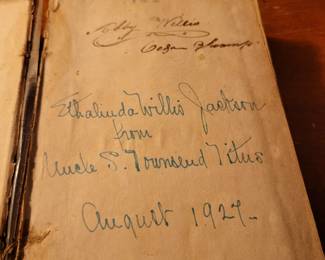 Abby Willis
Ethalinda Willis Jackson
from
Uncle S. Townsend Titus
August 1927